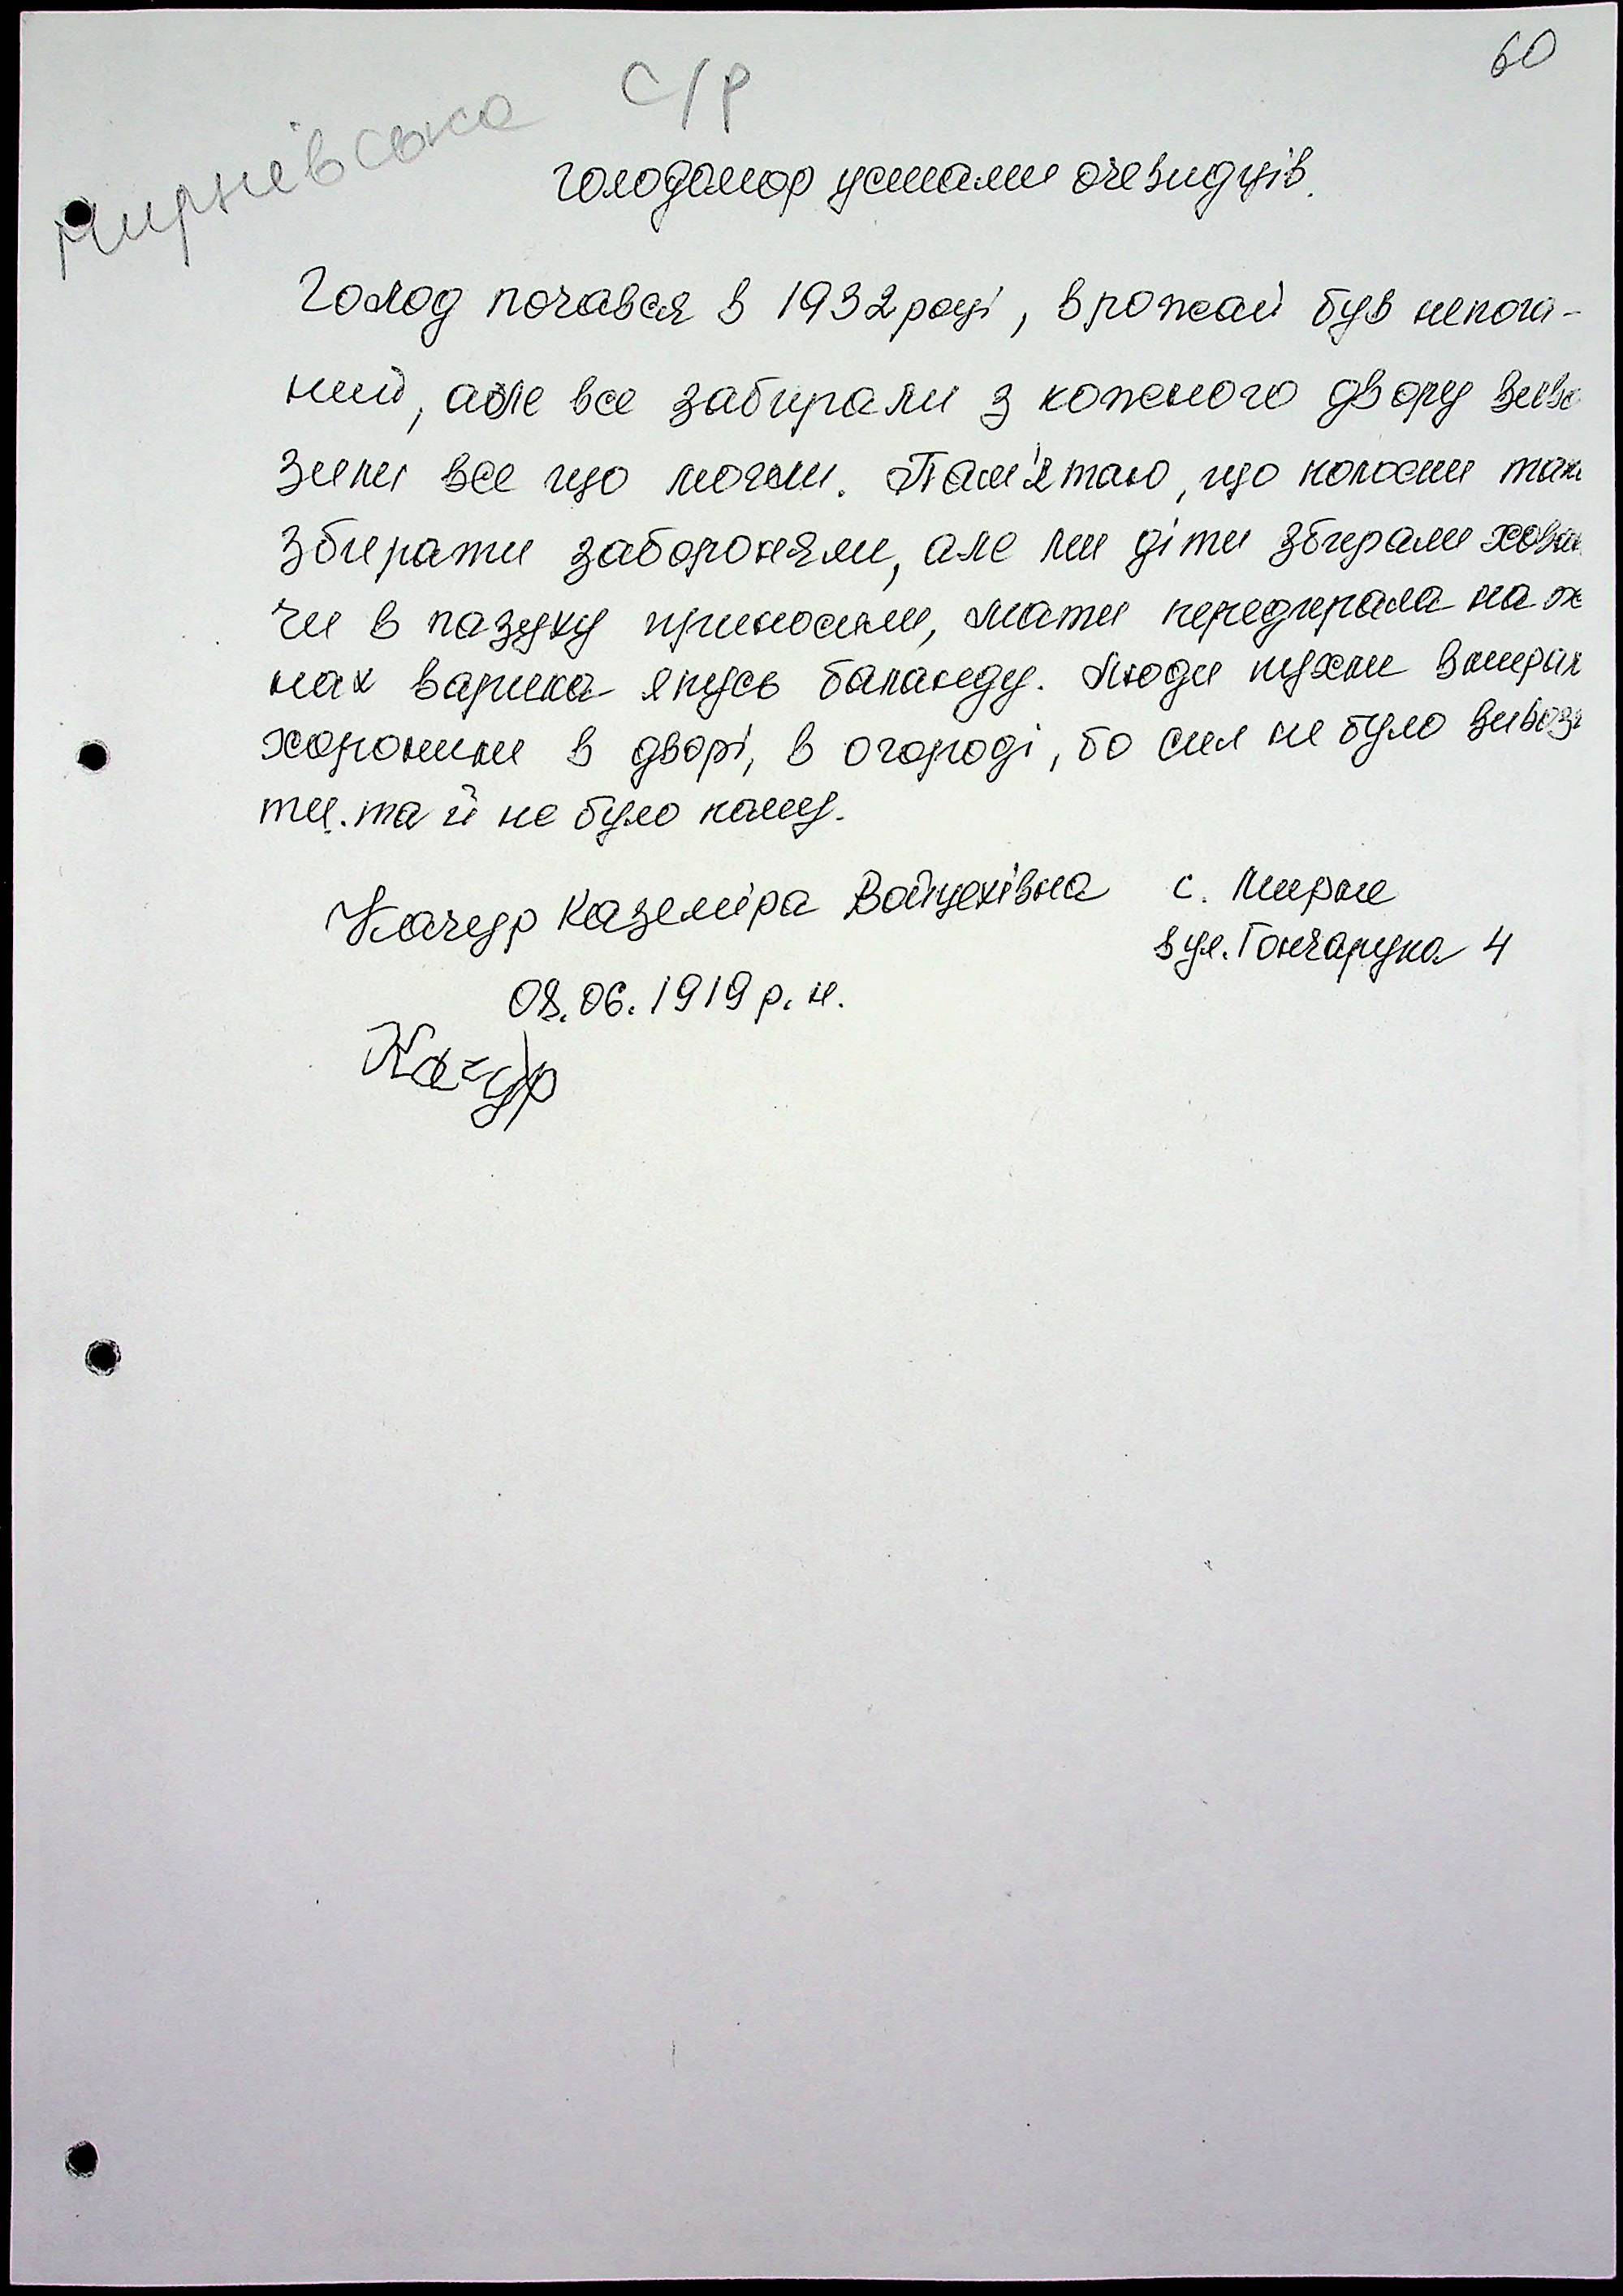 60
Мирнівська с/р
Голодомор устами очевидців.
Голод почався в 1932 році, врожай був непога-
ний, але все забирали з кожного двору виво
зили все що могли. Пам'ятаю, що колоски так
збирати забороняли, але ми діти збирали хова
чи в пазуху приносили, мати передирала на ж
нах варила якусь баланду. Люди пухли вмирал
хоронили в дворі, в огороді, бо сил не було вивоз
ти. та й не було кому.
Качур Каземіра Войцехівна с. Мирне
вул. Гончарука 4
08.06.1919 р.н.